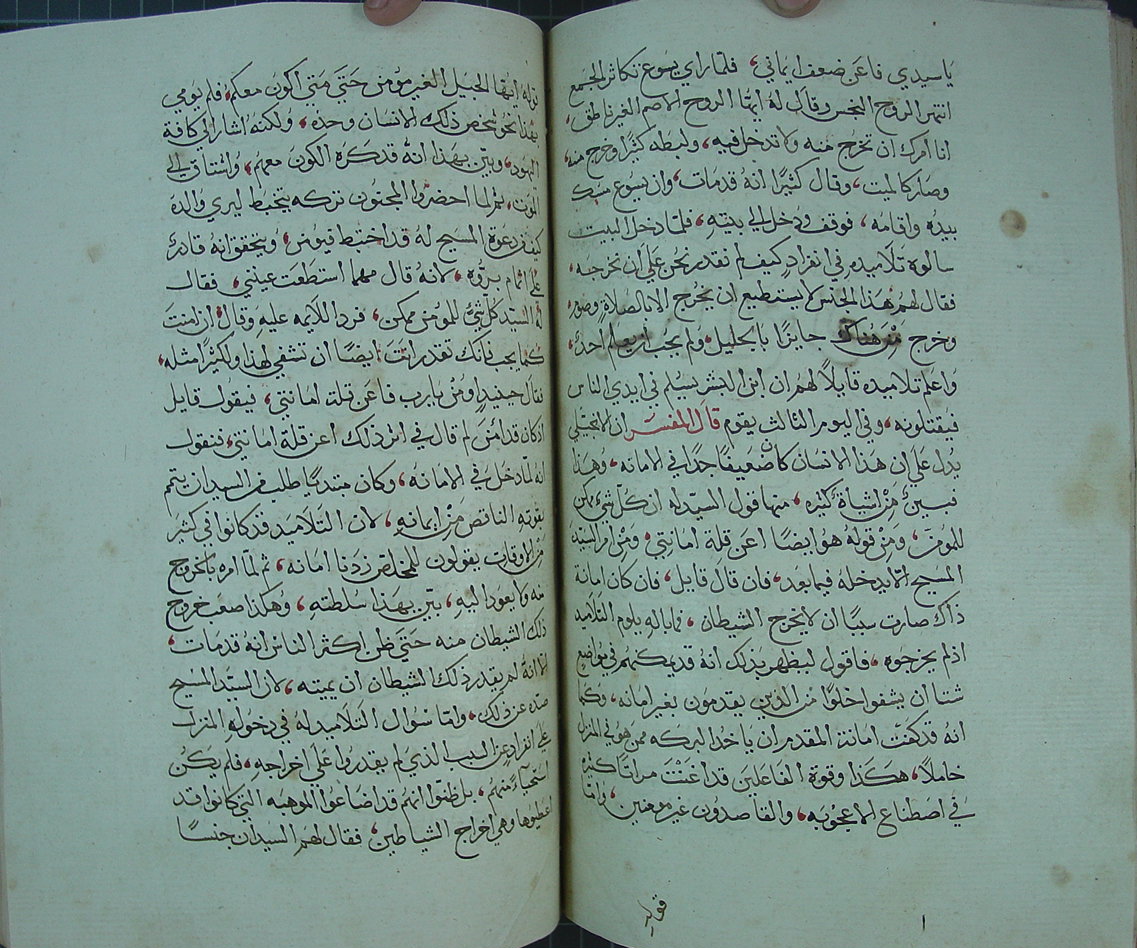 ياسيدي فاعن ضعف ايماني، فلما راي يسوع تكاثر الجمع
انتهر الروح النجس وقال له ايها الروح الاصم الغير ناطق،
انا امرك ان تخرج منه ولا تدخل فيه، ولبطه كثيرًا وخرج منه،
وصار كالميت، وقال كثيرًا انه قدمات، وان يسوع مسك
بيده واقامه، فوقف ودخل الي بيته، فلما دخل البيت
سالوه تلاميذه في انفراد كيف لم نقدر نحن علي ان نخرجه،
فقال لهم هذا الجنس لا يستطيع ان يخرج الا بالصلاة وصوم،
وخرج من هناك جايزًا بالجليل، ولم يحب ان يعلم احد،
واعلم تلاميذه قايلًا لهم ان ابن البشر يسلم في ايدي الناس
فيقتلونه، وفي اليوم الثالث يقوم قال المفسر ان الانجيلي
يدل علي ان هذا الانسان كان ضعيفًا جدًا في الامانه، وهذا
فبين من اشياء كثيره، منها قول السيد له ان كل شي ممكن
للمومن، ومن قوله هو ايضًا اعن قلة امانتي، ومن امر السيد
المسيح الا يدخله فيما بعد، فان قال قايل، فان كان امانة
ذاك صارت سببًا ان لا يخرج الشيطان، فما باله يلوم التلاميذ
اذ لم يخرجوه، فاقول ليظهر بذلك انه قد يمكنهم في مواضع
شتا ان يشفوا خلوًا من الذين يقدمون بغير امانه، وكما
انه قد كفت امانة المقدم ان ياخذ البركه ممن هو في المنزل
خاملًا، هكذا وقوة الفاعلين قد اغنت مرارًا كثيره
في اصطناع الاعجوبه، والقاصدون غير مومنين،
ا
قوله ايها الجيل الغير مومن حتي متي اكون معكم، فلم يومي
بهذا نحو شخص ذلك الانسان وحده، ولكنه اشار الي كافة
اليهود، وبين بهذا انه قد كره الكون معهم، واشتاق الي
الموت، ثم لما احضروا المجنون تركه يتخبط ليري والده
كيف من دعوة المسيح له قد اختبط فيومن، ويتحقق انه قادر
علي اتمام بروه، لانه قال مهما استطعت عيني، فقال
له السيد كل شي للمومن ممكن، فرد اللايمه عليه وقال ان امنت
كما يجب فانك تقدر انت ايضًا ان تشفي لهذا ولكثيرًا مثله،
فقال حينيذٍ اومن يارب فاعن قلة امانتي، فيقول قايل
اذ كان قد امن لم قال في اثر ذلك اعن قلة امانتي، فنقول
انه لما دخل في الامانه، وكان مبتديًا طلب من السيد ان يتمم
بقوته الناقص من ايمانه، لان التلاميذ قد كانوا في كثير
من الاوقات يقولون للمخلص زدنا امانه، ثم لما امره بالخروج
منه ولا يعود اليه، بين بهذا سلطته، وهكذا صعب خروج
ذلك الشيطان منه حتي ظن اكثر الناس انه قدمات،
الا انه لم يقدر ذلك الشيطان ان يميته، لان السيد المسيح
صده عن ذلك، واما سوال التلاميذ له في دخوله المنزل
علي انفراد عن السبب الذي لم يقدروا علي اخراجه، فلم يكن
استحياءً منهم، بل ظنوا انهم قد اضاعوا الموهبه التي كانوا قد
اعطيوها وهي اخراج الشياطين، فقال لهم السيد ان جنسًا